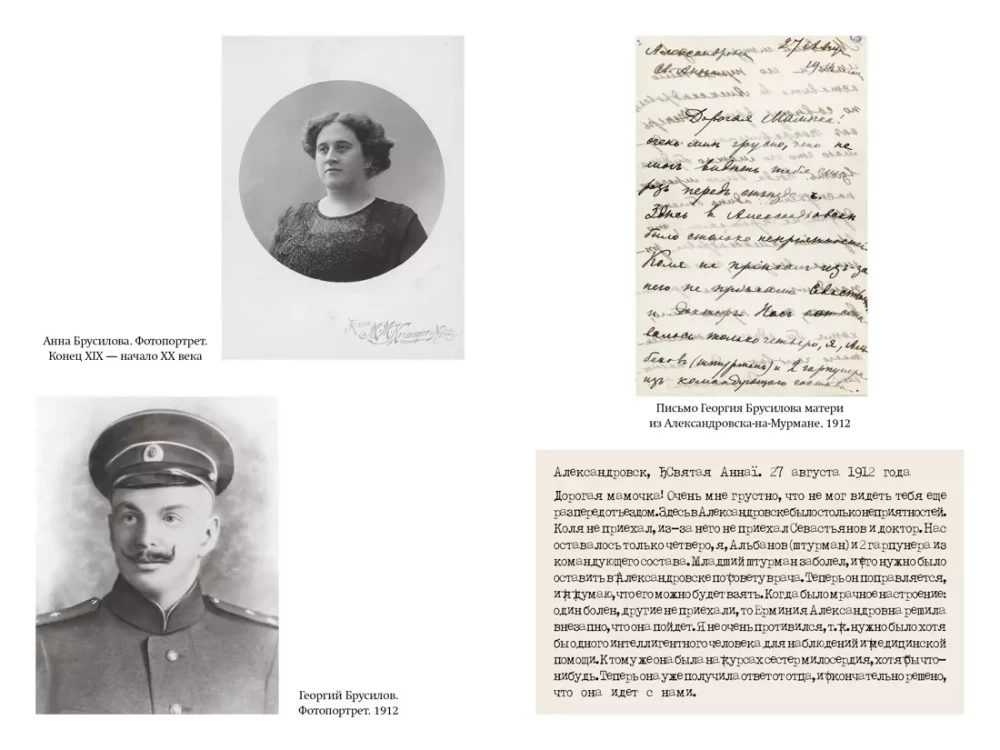 Анна Брусилова. Фотопортрет.
Конец XIX — начало XX века
Александровск 27
Дорогая Мамочка!
очень мнѣ грустно, что не
могъ видѣть тебя
разъ передъ
Здѣсь в Александровске
было столько непріятностей.
Коля не пріѣхалъ, изъ-за
него не пріѣхали
и докторъ. Насъ оста
валось только четверо, я, Аль
бановъ (штурманъ) и 2 гарпунера
изъ командующаго состава.
Письмо Георгия Брусилова матери
из Александровска-на-Мурмане, 1912
Георгий Брусилов.
Фотопортрет. 1912
Александровск, Святая Анна. 27 августа 1912 года
Дорогая мамочка! Очень мне грустно, что не мог видеть тебя еще
раз перед отъездом. Здесь в Александровске было столько неприятностей.
Коля не приехал, из-за него не приехал Севастьянов и доктор. Нас
оставалось только четверо, я, Альбанов (штурман) и 2 гарпунера из
командующего состава. Младший штурман заболел, и его нужно было
оставить в Александровске по совету врача. Теперь он поправляется,
и я думаю, что его можно будет взять. Когда было мрачное настроение:
один болен, другие не приехали, то Ерминия Александровна решила
внезапно, что она пойдет. Я не очень противился, т.к. нужно было хотя
бы одного интеллигентного человека для наблюдений и медицинской
помощи. К тому же она была на курсах сестер милосердия, хотя бы что-
нибудь. Теперь она уже получила ответ от отца, и окончательно решено,
что она идет с нами.